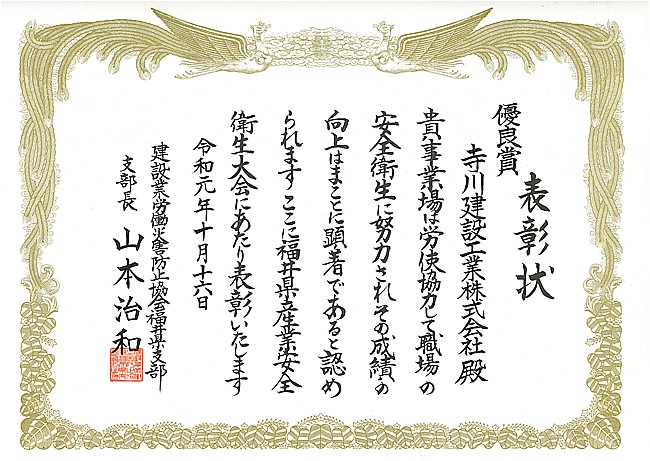 表彰状
優良賞
寺川建設工業株式会社殿
貴事業場は労使協力して職場の
安全衛生に努力されその成績の
向上はまことに顕著であると認め
られますここに福井県産業安全
衛生大会にあたり表彰いたします
令和元年十月十六日
建設業労働災害防止協会福井県支部
支部長 山本治和